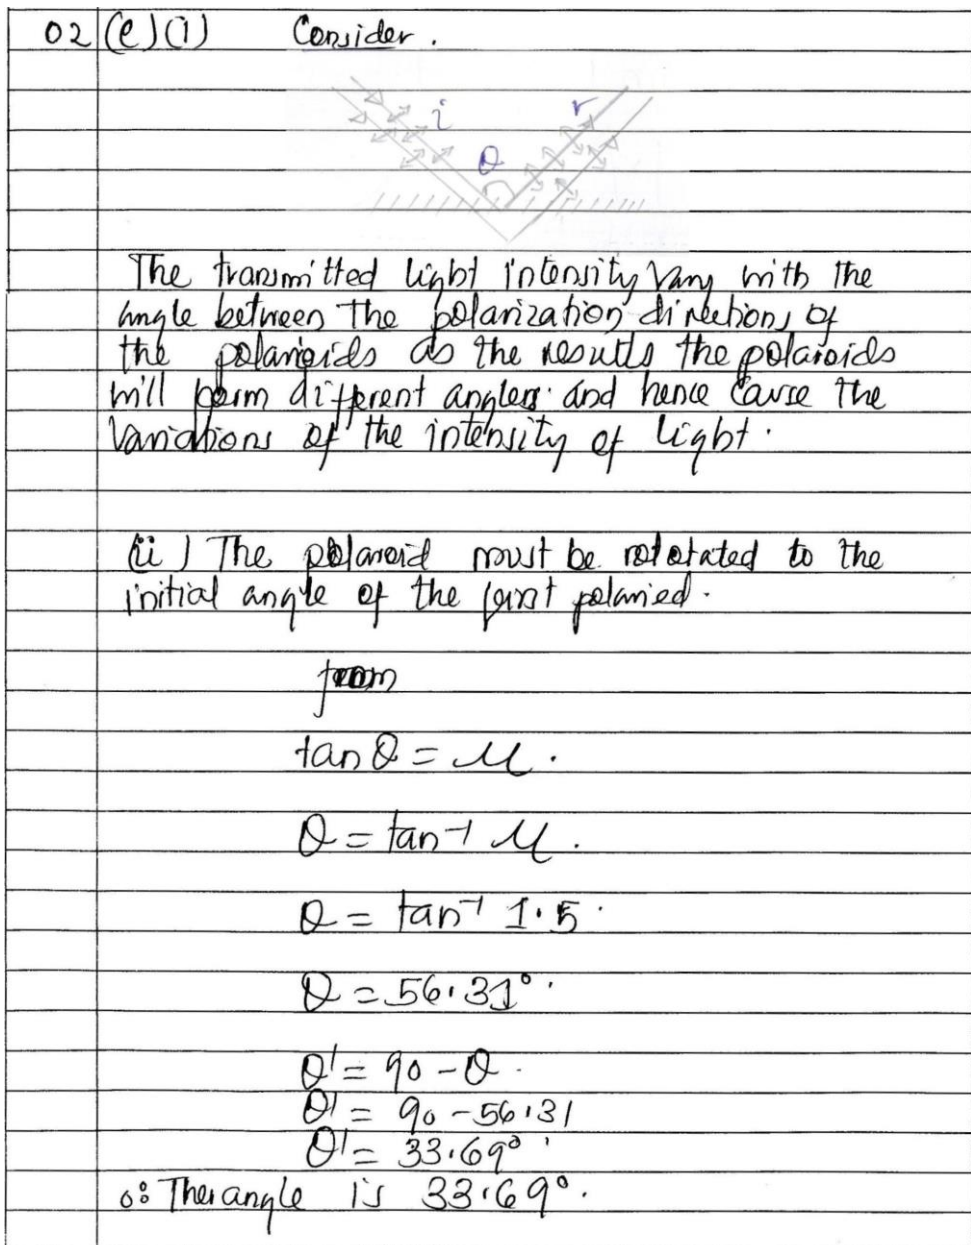 02 (e)(i) Consider.
i r
θ
The transmitted light intensity vary with the
angle between the polarization directions of
the polarioids as the results the polaroids
will form different angles and hence cause the
variations of the intensity of light.
(ii) The polaroid must be rotetated to the
initial angle of the first polaried.
from
tan θ = μ.
θ = tan⁻¹ μ.
θ = tan⁻¹ 1.5.
θ = 56.31°.
θ' = 90 - θ.
θ' = 90 - 56.31
θ' = 33.69°.
∴ The angle is 33.69°.